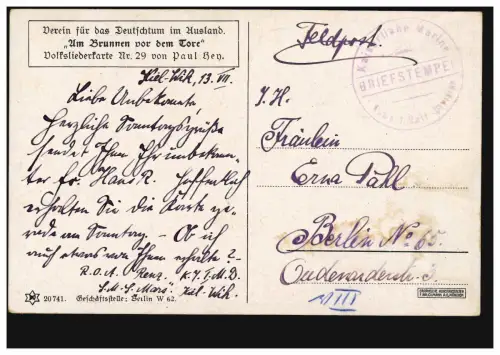 Verein für das Deutschtum im Ausland.
"Am Brunnen vor dem Tore"
Volksliederkarte Nr. 29 von Paul Hey.
Kiel-Wik, 13. VII.
Liebe Unbekannte,
Herzliche Sonntagsgrüße
sendet Ihnen Ihr unbekann-
ter Fr. Hans R. Hoffentlich
erhalten Sie die Karte ge-
rade am Sonntag. – Ob ich
auch etwas von Ihnen erhalte?
R.O.A. Renz. K.J.F.M.D.
S.M.S. "Mars". Kiel-Wik.
20741. Geschäftsstelle: Berlin W 62.
Feldpost.
Kaiserliche Marine
BRIEFSTEMPEL
S. H.
Fräulein
Erna Pahl
Berlin No 65.
Oudenarderstr.
III